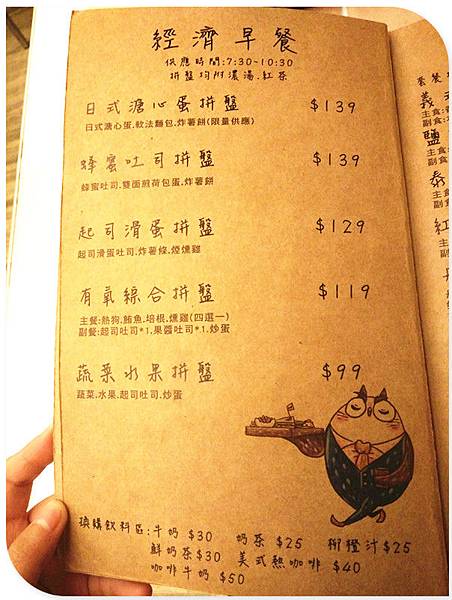 經濟早餐
供應時間:7:30~10:30
拼盤均附濃湯.紅茶
日式溏心蛋拼盤 $139
日式溏心蛋.軟法麵包.炸薯餅(限量供應)
蜂蜜吐司拼盤 $139
蜂蜜吐司.雙面煎荷包蛋.炸薯餅
起司滑蛋拼盤 $129
起司滑蛋吐司.炸薯條.煙燻雞
有氧綜合拼盤 $119
主餐:熱狗.鮪魚.培根.燻雞(四選一)
副餐:起司吐司*1.果醬吐司*1.炒蛋
蔬菜水果拼盤 $99
蔬菜.水果.起司吐司.炒蛋
換購飲料區:牛奶 $30 奶茶 $25 柳橙汁 $25
鮮奶茶$30 美式熱咖啡 $40
咖啡牛奶 $50
套餐
義
主食:
副食:
鹽
主食:
副食:
泰
主食
副食
紅